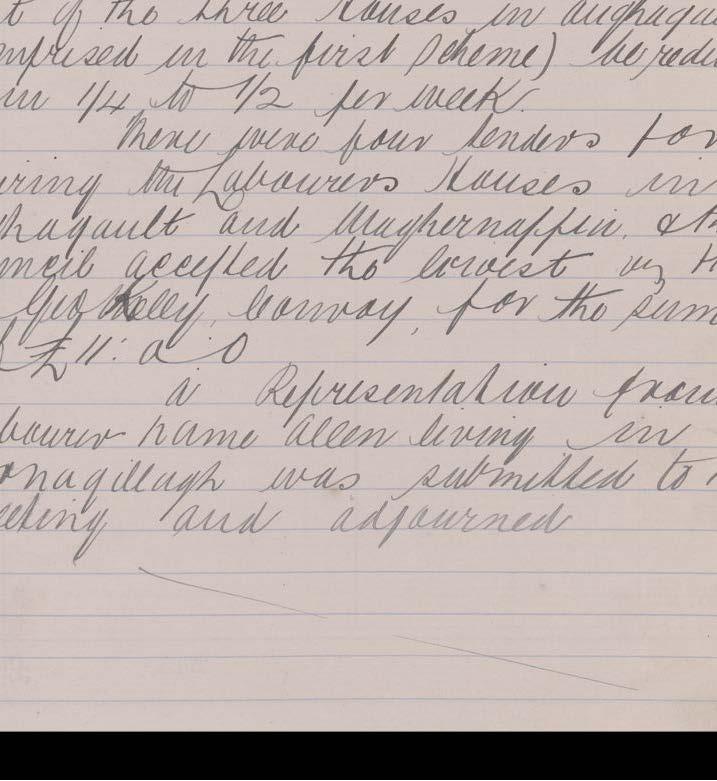 t of the three Houses in aughagau
mprised in the first Scheme) be redu
in 1/4 to 1/2 per week.
There were four tenders for
iring the Labourers Houses in
hagault and Maghernappin, & th
ncil accepted the lowest viz th
Geo Kelly, Conway, for the sum
£11: 0 0
a Representation from
bourer name Allen living in
onagillagh was submitted to
eeting and adjourned